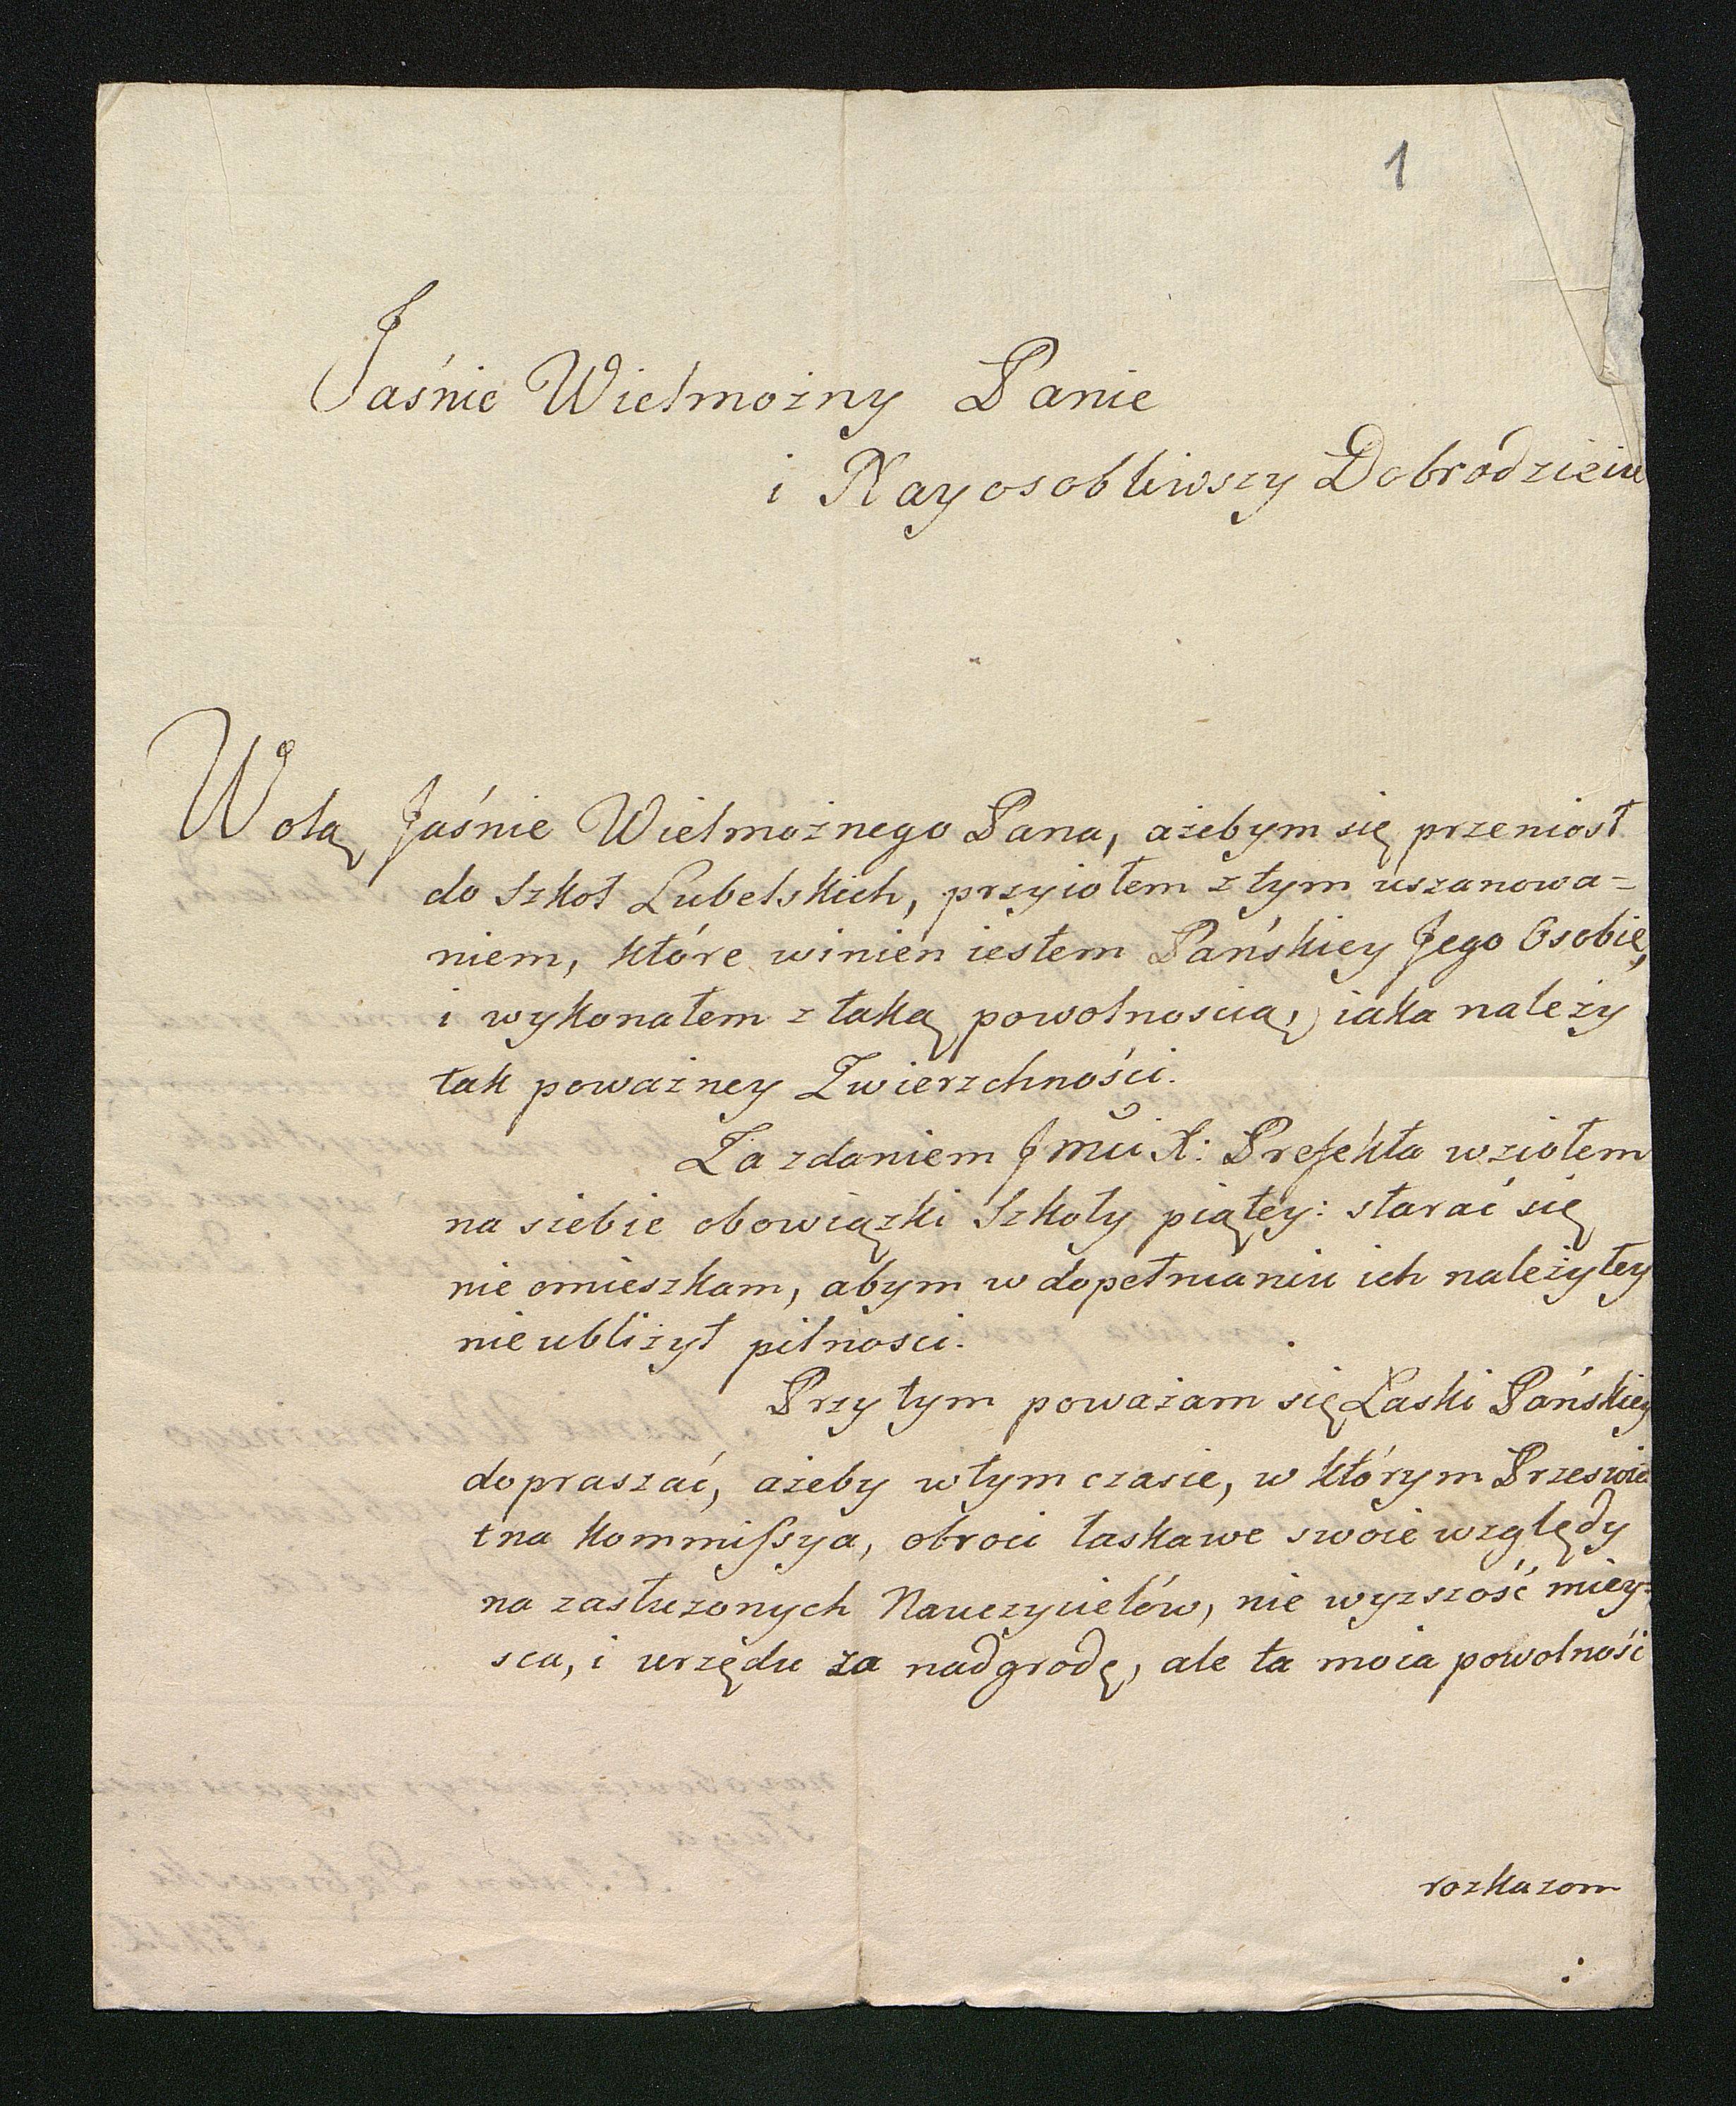 1
Jaśnie Wielmożny Panie
i Nayosobliwszy Dobrodzieiu
Wolą Jaśnie Wielmożnego Pana, ażebym się przeniosł
do Szkoł Lubelskich, przyiołem z tym uszanowa=
niem, które winien iestem Pańskiey Jego Osobie,
i wykonałem z taką powolnoscią, iaka należy
tak poważney Zwierzchności.
Za zdaniem Jmci X: Prefekta wziołem
na siebie obowiązki Szkoły piątey: starać się
nie omieszkam, abym w dopełnianiu ich należytey
nie ubliżył pilnosci.
Przy tym poważam się Łaski Pańskiey
dopraszać, ażeby w tym czasie, w którym Prześwie
tna Kommissya, obroci łaskawe swoie względy
na zasłużonych Nauczycielów, nie wyzszość miey=
sca, i urzędu za nadgrodę, ale ta moia powolność
rozkazom